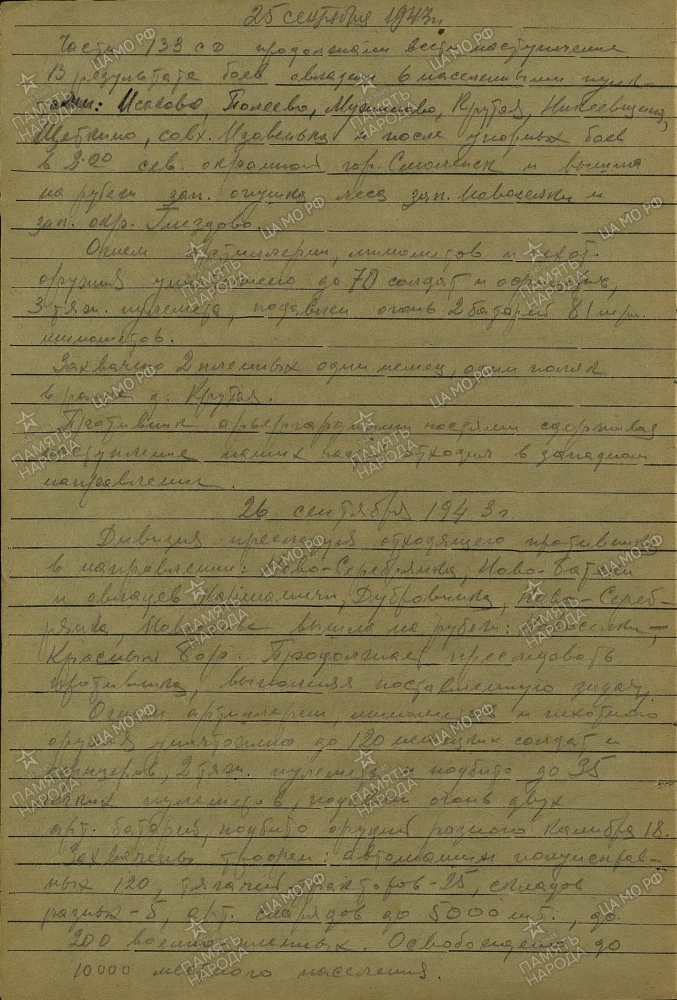 25 сентября 1943 г.
Части 133 сд продолжали вести наступление.
В результате боев овладели 6 населенными пунк-
тами: Исаково, Полеево, , Крутая, Никеевщина,
Щеткино, совх. и после упорных боев
в 2-00 сев. окраиной гор. Смоленск и вышли
на рубеж зап. опушка леса зап. Новоселки и
зап. окр. Гнездово.
Огнем артиллерии, минометов и пехот.
оружия уничтожено до 70 солдат и офицеров,
3 тяж. пулемета, подавлен огонь 2 батарей 81 м/м.
минометов.
Захвачено 2 пленных один немец, один поляк
в районе д. Крутая.
Противник арьергардными частями сдерживая
наступление наших частей отходил в западном
направлении.
26 сентября 1943 г
Дивизия преследуя отходящего противника
в направлении: Ново-Серебрянка, Ново-Батеки
и овладев , Дубровинка, Ново-Сереб-
рянка, вышла на рубеж: Новоселки,
Красный Бор. Продолжает преследовать
противника, выполняя поставленную задачу.
Огнем артиллерии, минометов и пехотного
оружия уничтожено до 120 немецких солдат и
офицеров, 2 тяж. пулемета и подбито до 35
пулеметов, подавлен огонь двух
арт. батарей, подбито орудий разного калибра 18.
Захвачены трофеи: автомашин полуисправ-
ных 120, тягачей тракторов - 25, складов
разных - 5, арт. снарядов до 5000 шт., до
200 военнопленных. Освобождено до
10000 местного населения.
ПАМЯТЬ НАРОДА
ЦА МО РФ